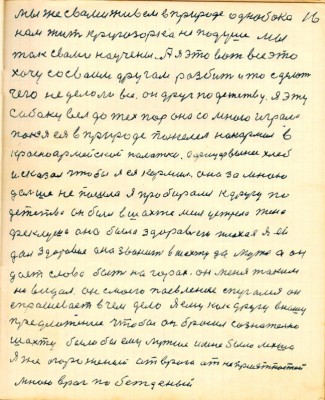 мы же с вами живем в природе однобока 16
нам жить кругозорка не подуше мы
так с вами научены. А я это вот все это
хочу со своим другам разбить и то сделат
чего не делали вы. он друг по детству. Я эту
собаку вел до тех пор она со мною играла
пока я в природе пожелел накормил в
красноармейской палатки. хлеб
и сказал чтобы я ея кормил. она за мною
дальше не пошла Я пробирался к другу по
детству он был в шахте меня встрела жена
феклуша она была здорова Я ей
дал здоровие она звонит в шахту да мужа а он
дает слово быть на горах. он меня таким
не видал. он моего поевление спугался он
спрашевает в чем дело Я ему как другу внашу
предложение чтобы он бросил сознательно
шахту было бы ему лутше и мне было легко
Я же огороженый от врага от неприятностей
мною враг по бежденый